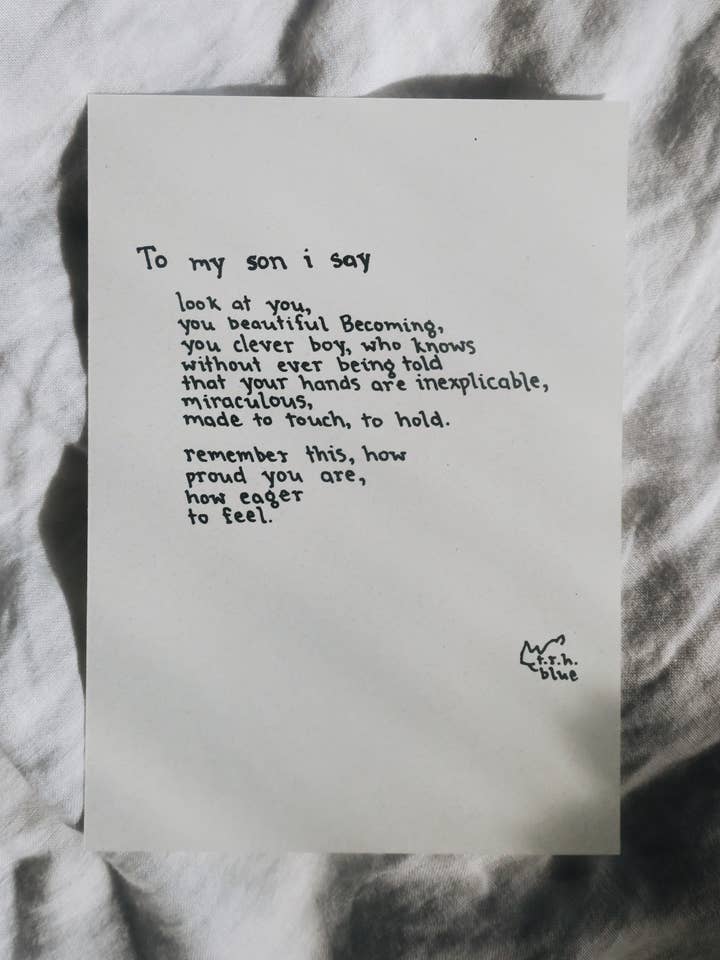 To my son i say
look at you,
you beautiful Becoming,
you clever boy, who knows
without ever being told
that your hands are inexplicable,
miraculous,
made to touch, to hold.
remember this, how
proud you are,
how eager
to feel.
t.r.h.
blue